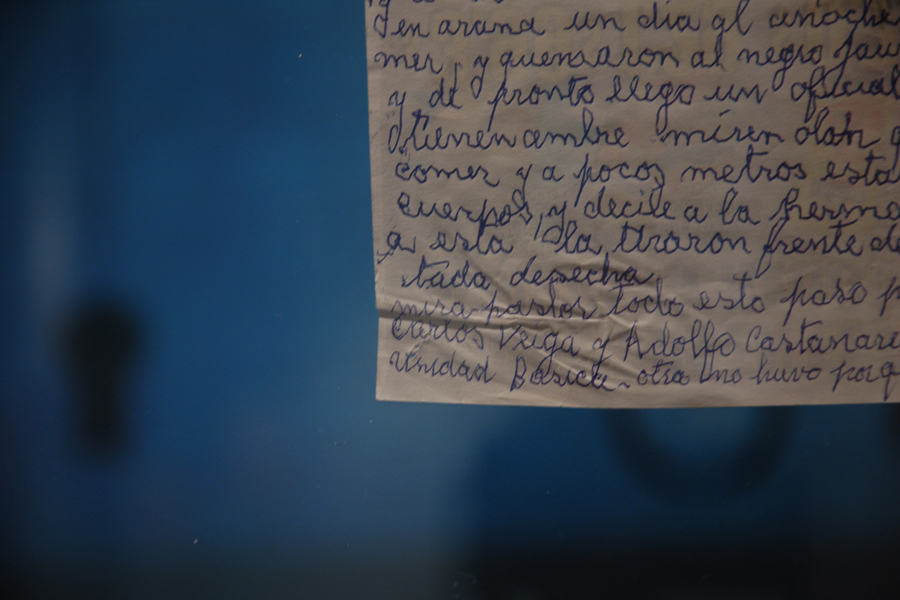 en arana un dia al anoche
mer, y quemaron al negro
y de pronto llego un oficial
tienen ambre miren olah
comer y a pocos metros esta
cuerpos, y decile a la hermo
a esta la tiraron frente de
tada desecha,
mira pastor todo esto paso p
Carlos Veiga y Adolfo Castanare
unidad Basica otra no huvo porq